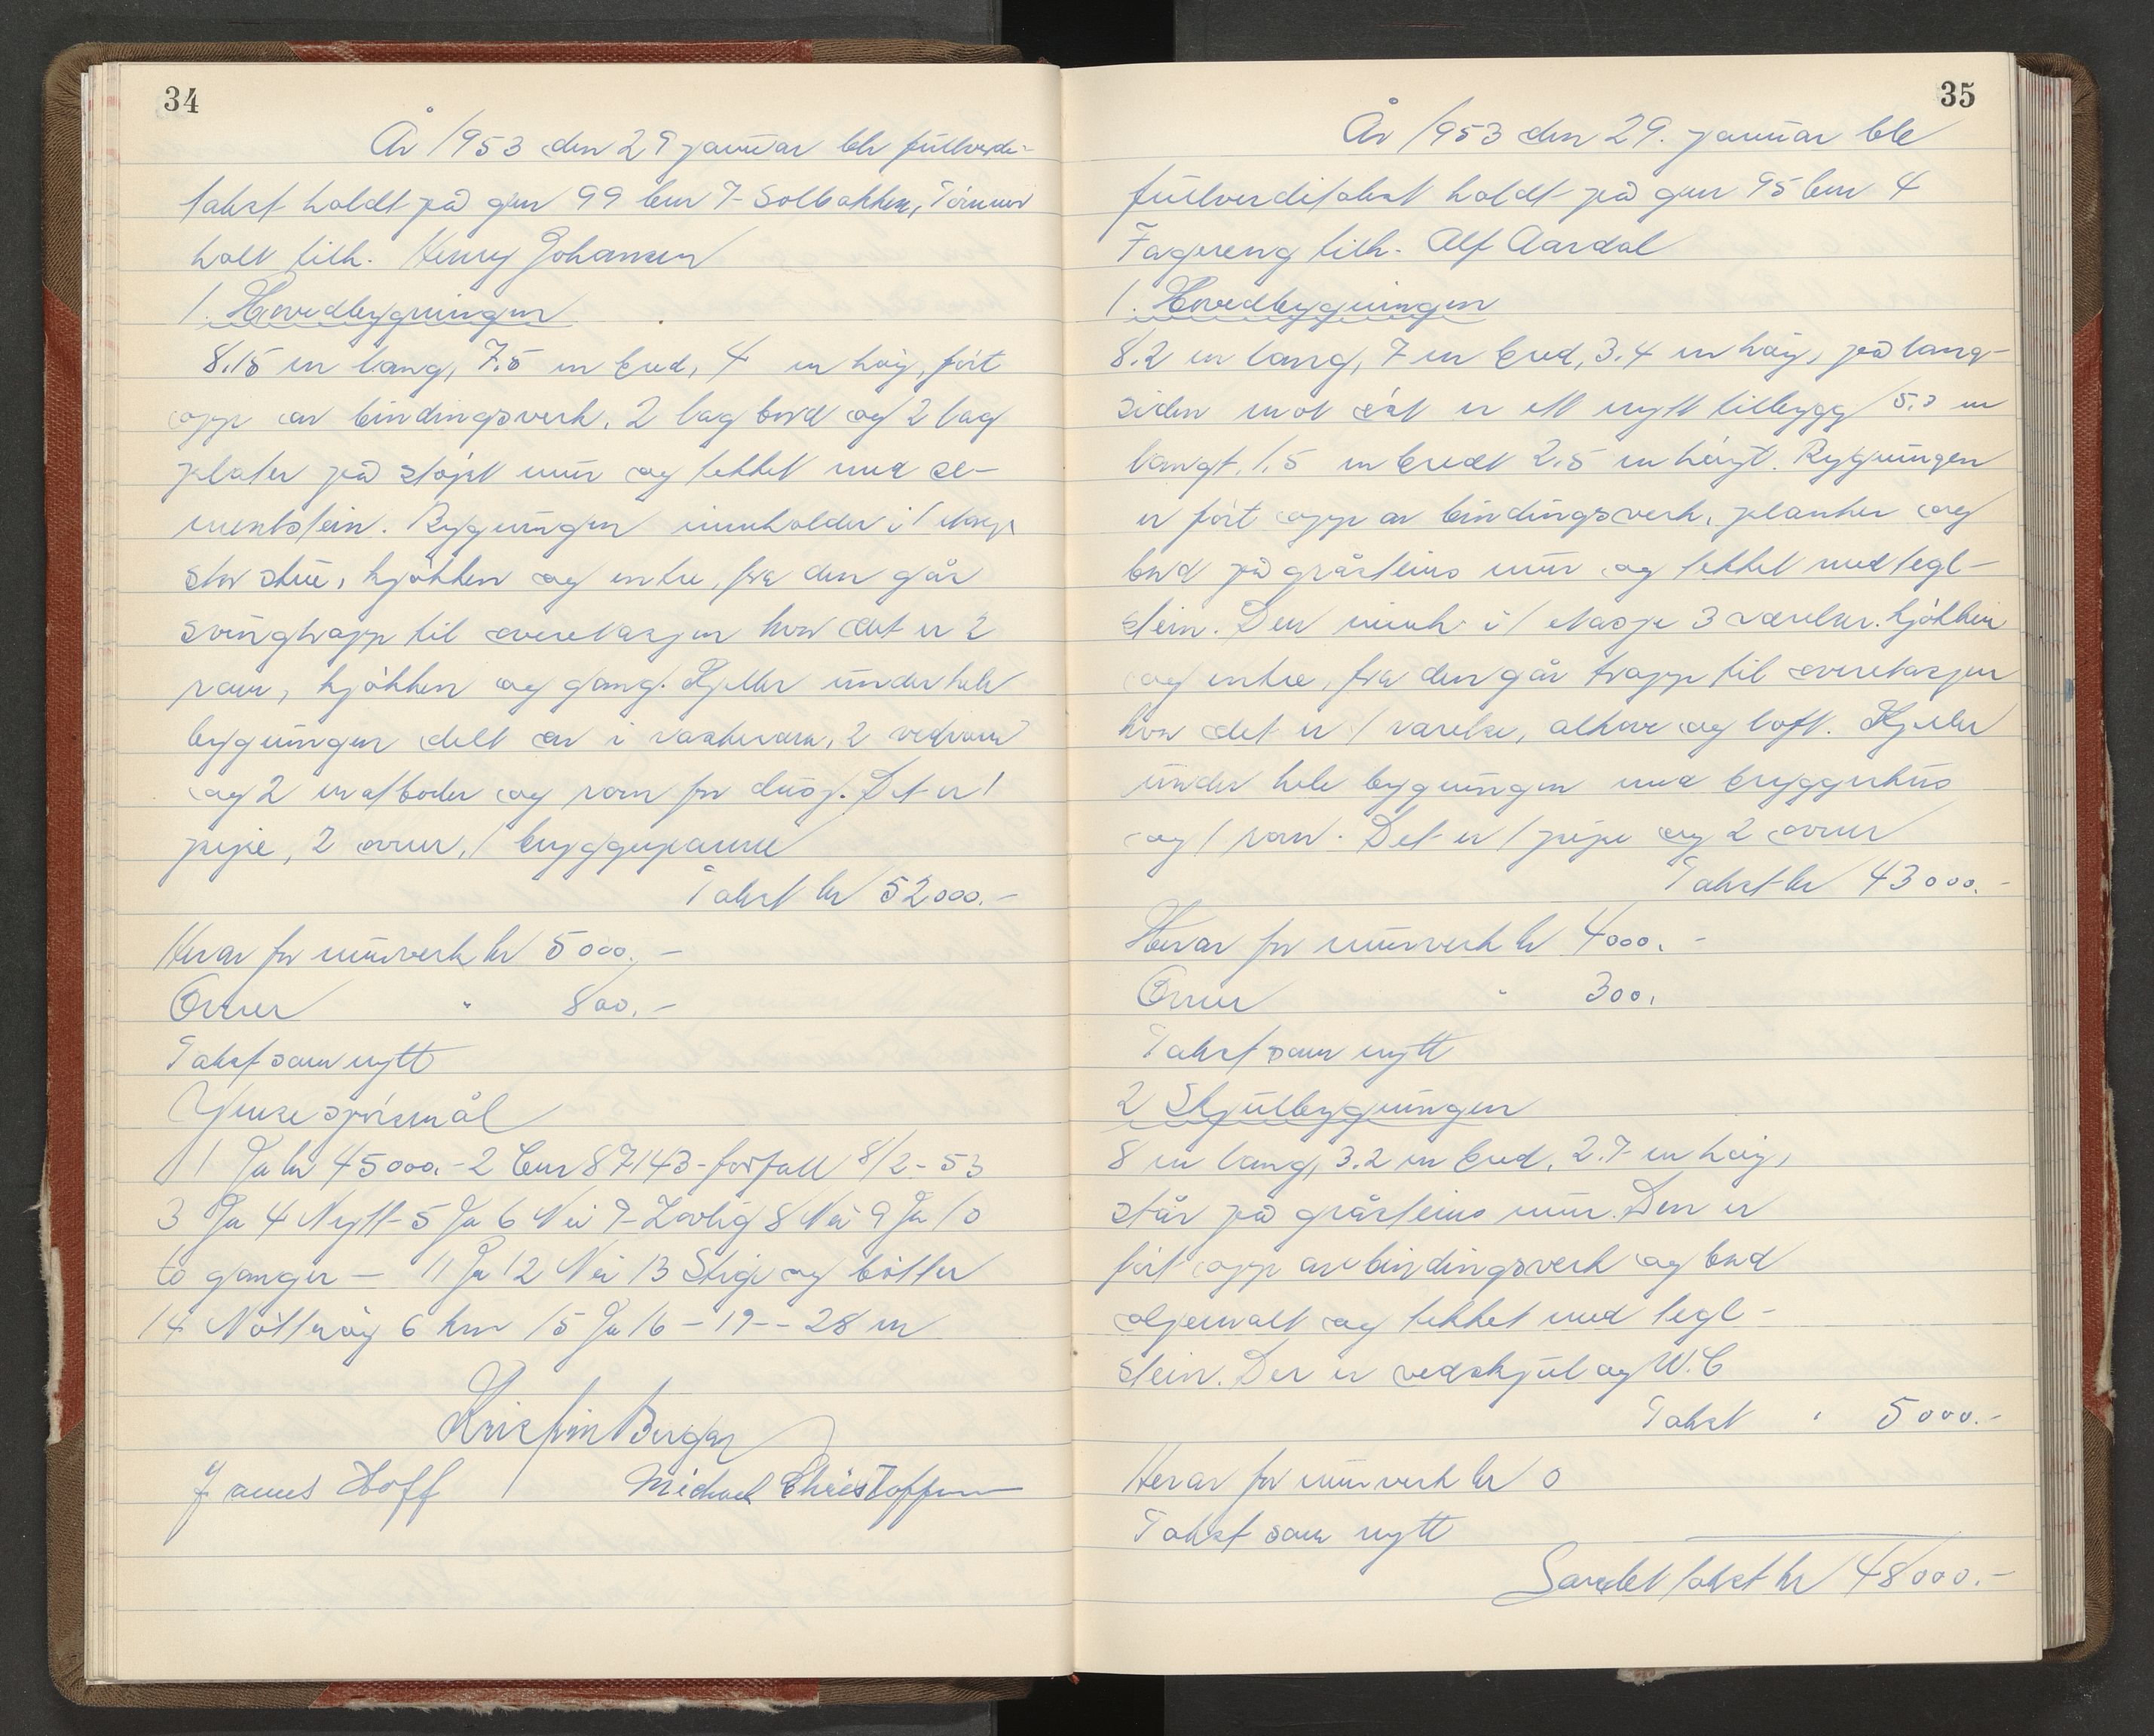 34
År 1953 den 29 januar ble fullverdi-
takst holdt på gnr 99 bnr 7 Solbakken, Tørmer
holt tilh. Henry Johansen
1. Hovedbygningen
8.15 m lang, 7.5 m bred, 4 m høy, ført
opp av bindingsverk, 2 lag bord og 2 lag
plater på støpt mur og tekket med se-
mentstein. Bygningen inneholder i 1 etasje
stor stue, kjøkken og entre, fra den går
svingtrapp til overetasjen hvor det er 2
rom, kjøkken og gang. Kjeller under hele
bygningen delt av i vaskerom, 2 vedrom
og 2 matboder og rom for dusj. Det er 1
pipe, 2 ovner, 1 bryggepanne
Takst kr 52000.-
Herav for murverk kr 5000.-
Ovner " 800.-
Takst som nytt
Ymse spörsmål
1 Ja kr 45000.- 2 bnr 87143 - forfall 8/2-53
3 Ja 4 Nytt - 5 Ja 6 Nei 7 - Lovlig 8 Nei 9 Ja 10
to ganger - 11 Ja 12 Nei 13 Stige og bøtter
14 Nøtterøy 6 km 15 Ja 16 - 17 -- 28 m
Kristian Berger
James Hoff Michael Christoffersen
35
År 1953 den 29. januar ble
fullverditakst holdt på gnr 95 bnr 4
Fagereng tilh. Alf Aardal
1. Hovedbygningen
8.2 m lang, 7 m bred, 3.4 m høy, på lang-
siden mot øst er ett nytt tilbygg 5.3 m
langt, 1.5 m bredt 2.5 m høyt. Bygningen
er ført opp av bindingsverk, planker og
bord på gråsteins mur og tekket med tegl-
stein. Den inneh. i 1 etasje 3 værelser. kjøkken
og entre, fra den går trapp til overetasjen
hvor det er 1 værelse, alkove og loft. Kjeller
under hele bygningen med bryggerhus
og 1 rom. Det er 1 pipe og 2 ovner
Takst kr 43000.-
Herav for murverk kr 4000.-
Ovner " 300.
Takst som nytt
2 Skjulbygningen
8 m lang, 3.2 m bred, 2.7 m høy,
står på gråsteins mur. Den er
ført opp av bindingsverk og bord
oljemalt og tekket med tegl-
stein. Der er vedskjul og W.C
Takst " 5000.-
Herav for murverk kr 0
Takst som nytt
Samlet takst kr 48000.-